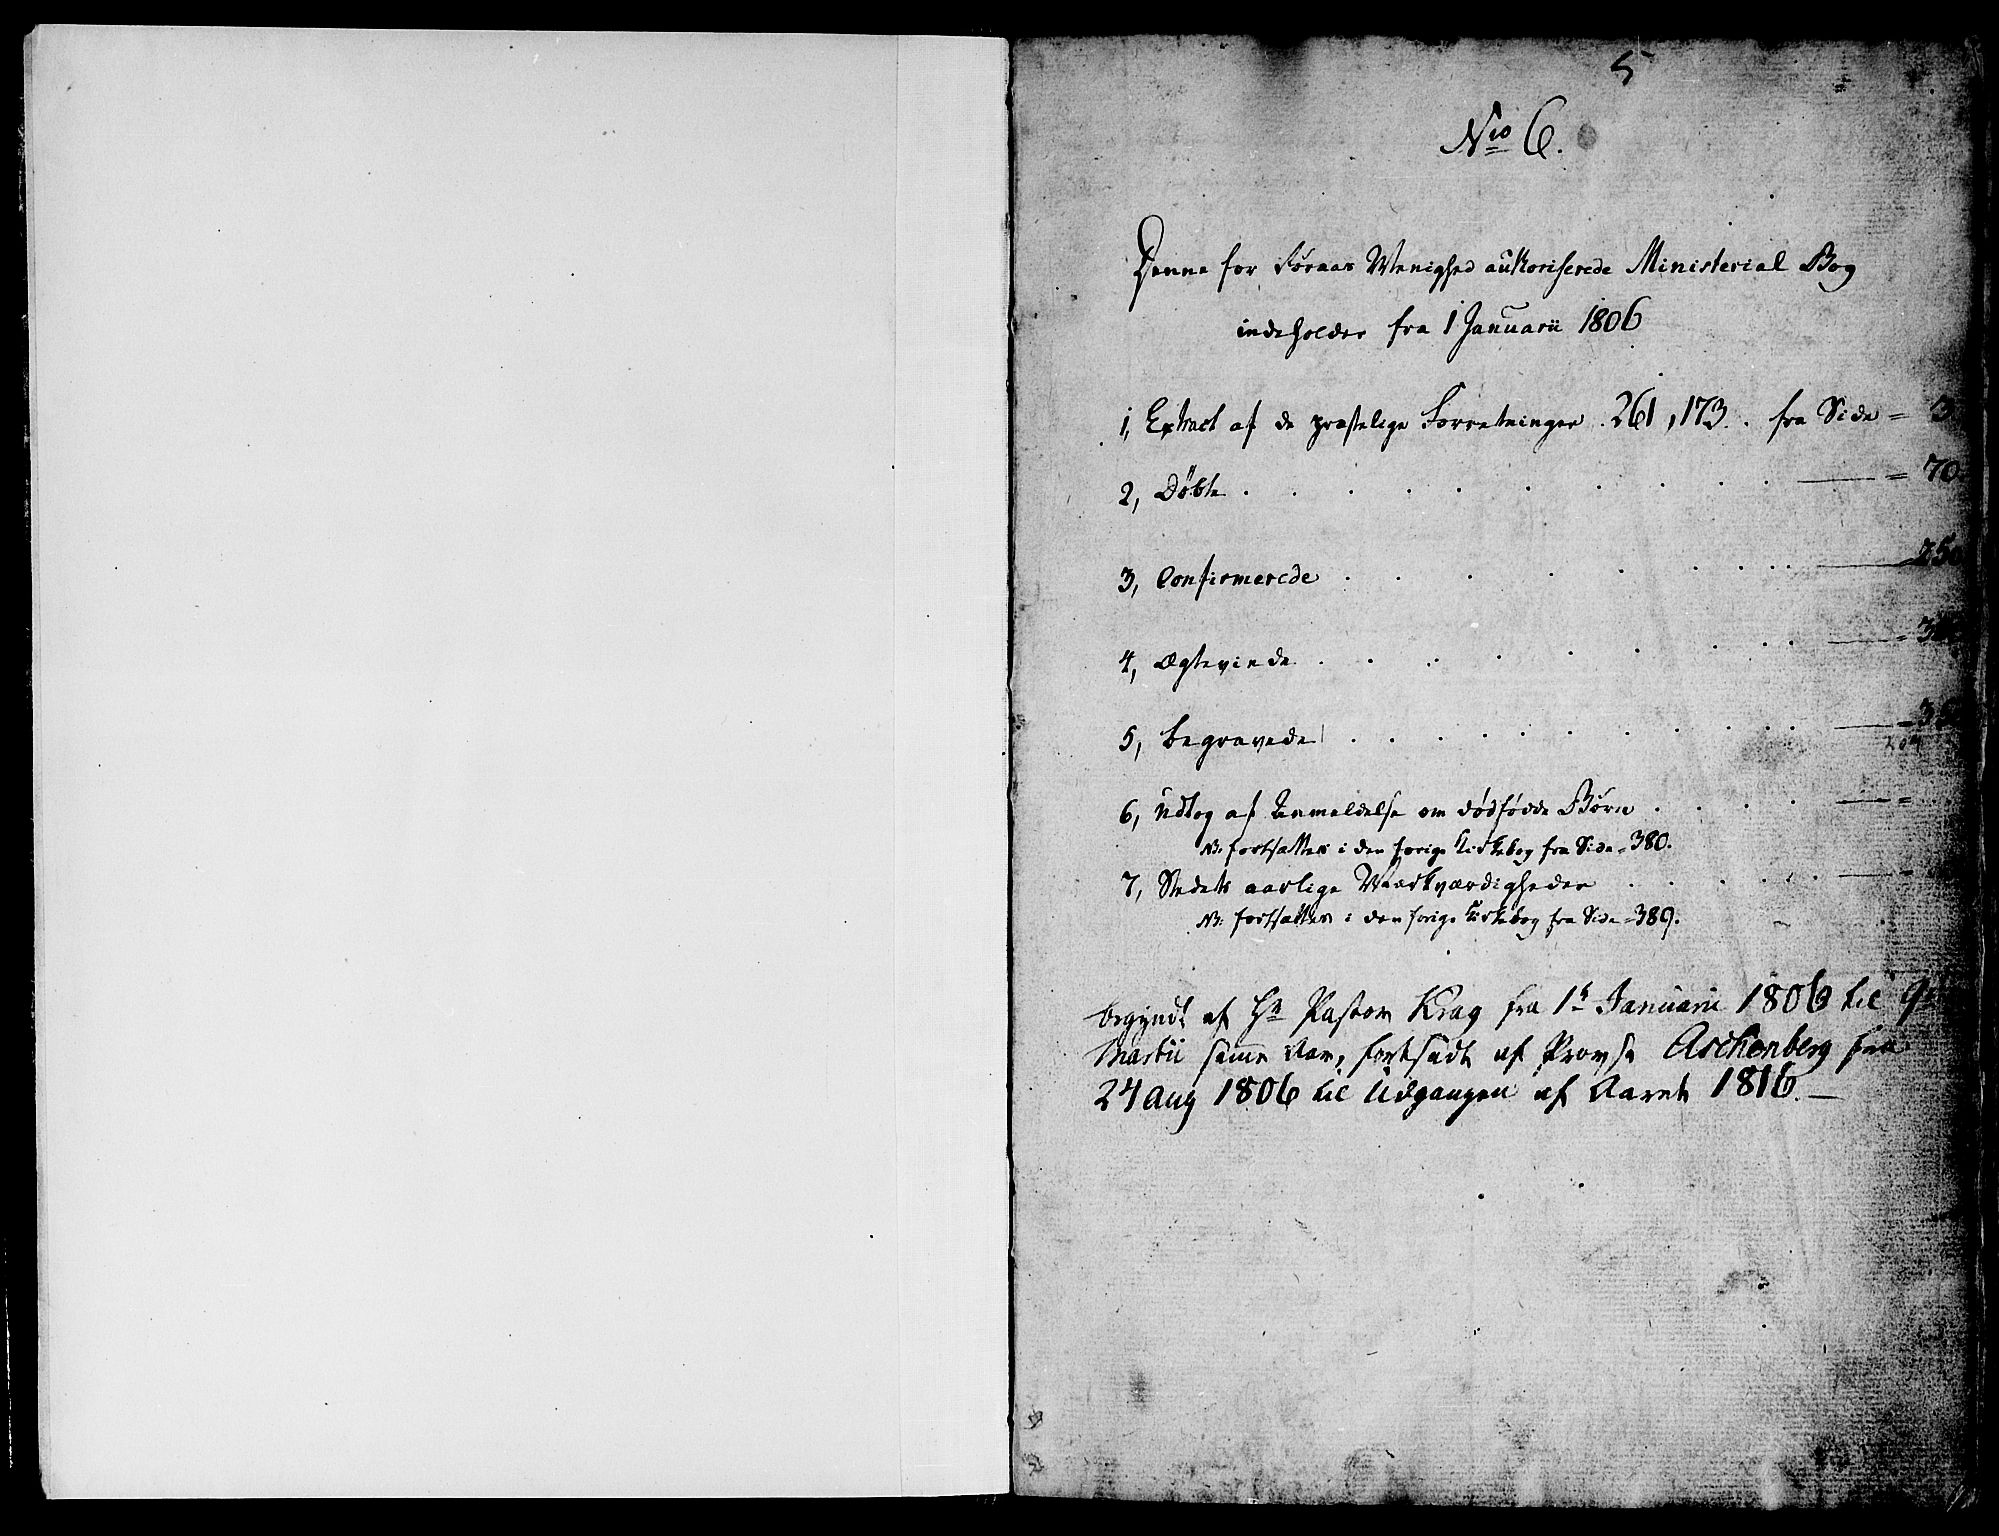 5
No 6.
Denne for Røraas Menighed authoriserede Ministerial Bog
indeholder fra 1 Januarii 1806
1, Extract af de præstelige Forretninger . 261, 173 . fra Side = 3
2, Døbte = 70
3, Confirmerede
4, Ægteviede
5, begravede
6, Udtog af Anmeldelse om dødfødde Børn
NB: fortsættes i den forige Kirkebog fra Side = 380.
7, Stedets aarlige Mærkværdigheder
NB: fortsættes i den forige Kirkebog fra Side = 389.
begyndt af Hr Pastor Krag fra 1t Januarii 1806 til
Martii samme Aar, fortsadt af Provst Aschenberg fra
24 Aug 1806 til Udgangen af Aaret 1816.